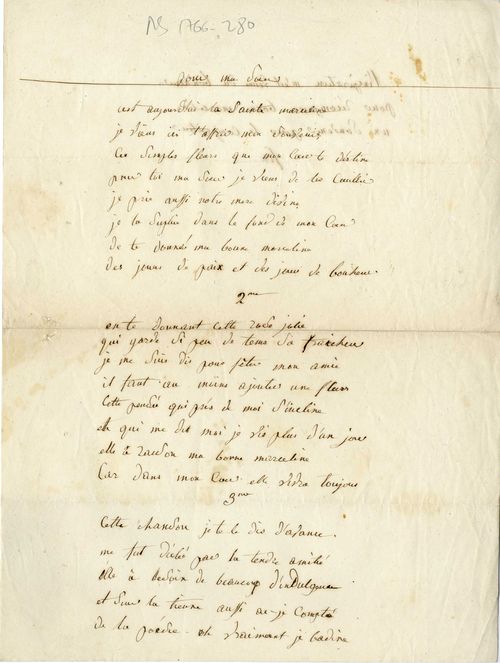 NS 1766-280
pour ma Sœur
cest aujourdhui la Sainte marceline
je viens ici t'offrir mon Souvenir
Ces Simples fleurs que mon Cœur te destine
pour toi ma Sœur je viens de les Cuillir
je prie aussi notre mere divine
je la Suplie dans le fond de mon Cœur
de te donné ma bonne marceline
des jours de paix et des jours de bonheur.
2me
en te donnant cette rose jolie
qui garde Si peu de tems Sa fraicheur
je me Suis dis pour fêter mon amie
il faut au moins ajouter une fleur
Cette pensée qui près de moi S'incline
et qui me dit moi je vis plus d'un jour
elle à raison ma bonne marceline
Car dans mon Cœur elle vivra toujours
3me
Cette chanson je te le dis d'avance
me fut dictée par la tendre amitié
elle à besoin de beaucoup d'indulgence
et Sur la tienne aussi ai-je Compté
de la poésie vraiment je badine